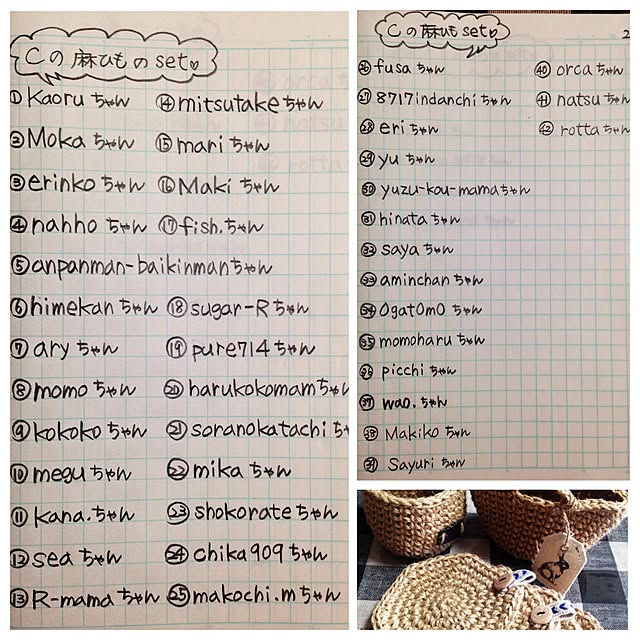 Cの麻ひものset♡
①Kaoruちゃん
②Mokaちゃん
③erinkoちゃん
④nahhoちゃん
⑤anpanman-baikinmanちゃん
⑥himekanちゃん
⑦aryちゃん
⑧momoちゃん
⑨kokokoちゃん
⑩meguちゃん
⑪kana.ちゃん
⑫seaちゃん
⑬R-mamaちゃん
⑭mitsutakeちゃん
⑮mariちゃん
⑯Makiちゃん
⑰fish.ちゃん
⑱sugar-Rちゃん
⑲pure714ちゃん
⑳harukokomamちゃ
㉑soranokatachiち
㉒mikaちゃん
㉓shokorateちゃん
㉔chika909ちゃん
㉕makochi.mちゃん
Cの麻ひもset♡
2
㉖fusaちゃん
㉗8717indanchiちゃん
㉘eriちゃん
㉙yuちゃん
㉚yuzu-kou-mamaちゃん
㉛hinataちゃん
㉜sayaちゃん
㉝aminchanちゃん
㉞OgatOmOちゃん
㉟momoharuちゃん
㊱picchiちゃん
㊲wao.ちゃん
㊳Makikoちゃん
㊴Sayuriちゃん
㊵orcaちゃん
㊶natsuちゃん
㊷rottaちゃん